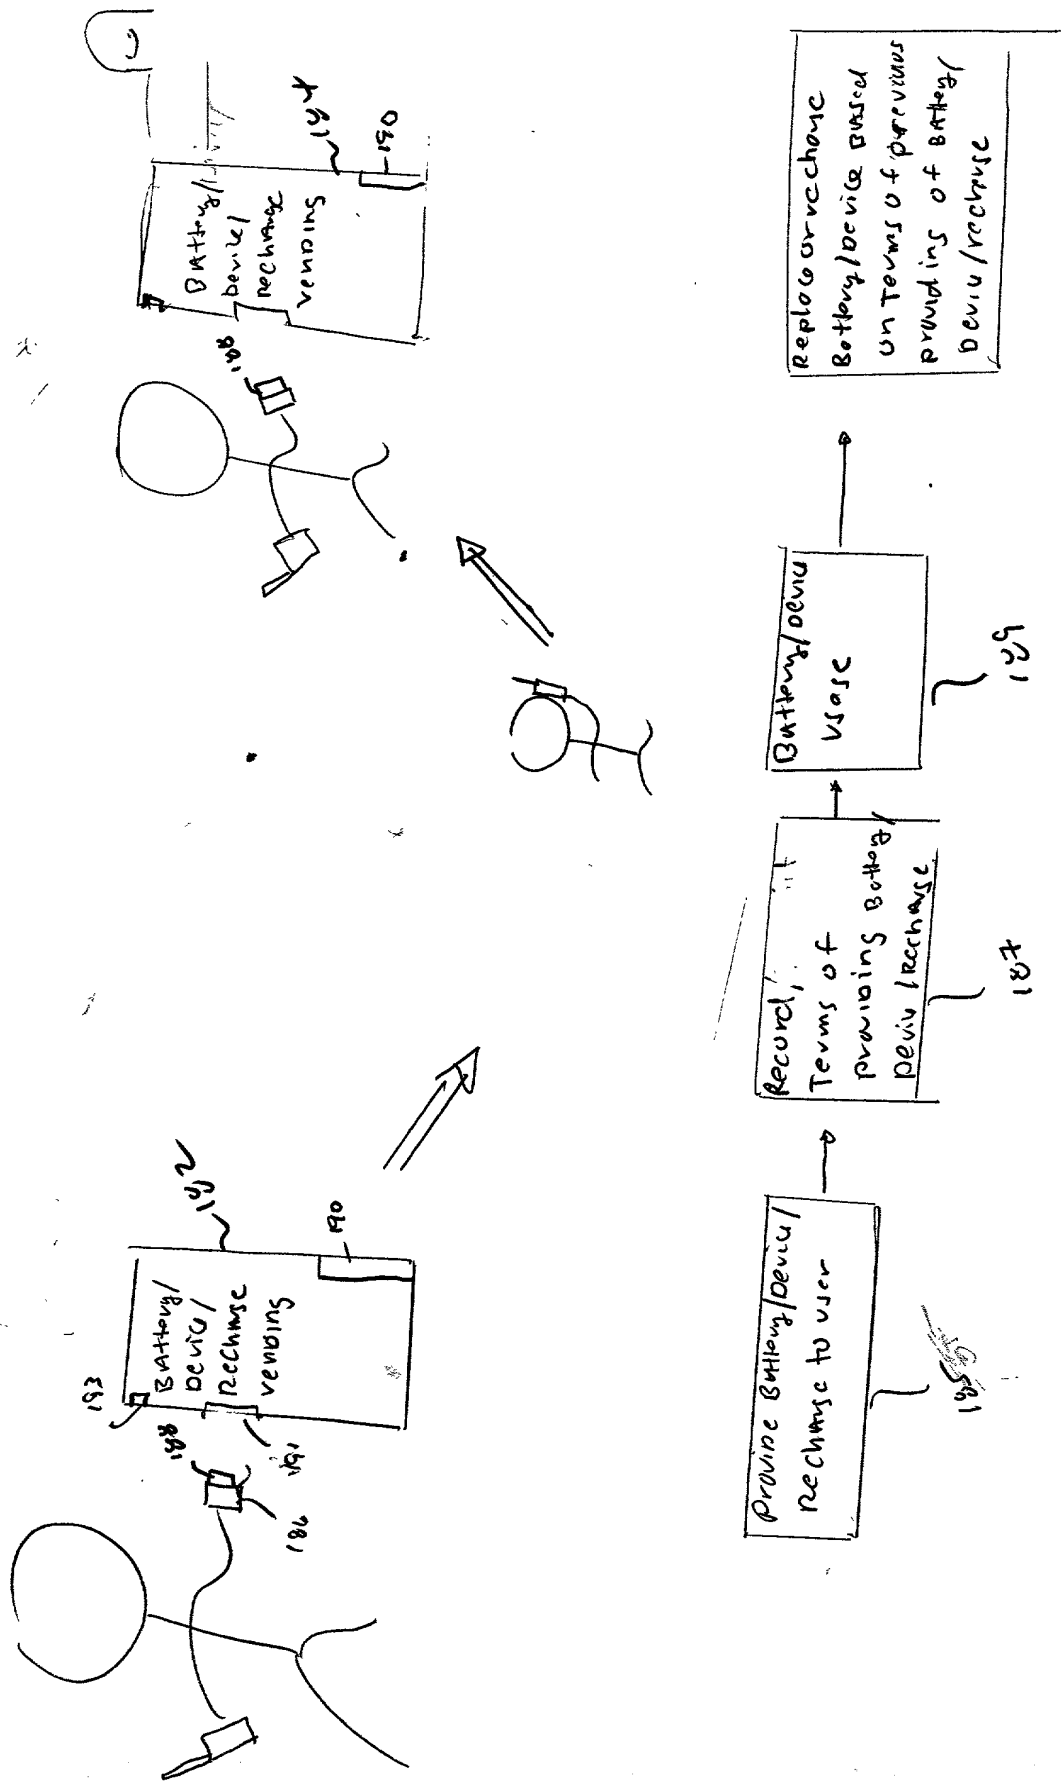 193
BAttery/
Device/
Rechange
vending
192
190
188
191
186
BAttery/
Device/
Rechange
vending
194
190
188
Provide Battery/Device/
Rechange to user
185
Record,
Terms of
providing Battery/
Device/Rechange
187
Battery/Device
usage
189
Replace or rechange
Battery/Device Based
on Terms of previous
providing of Battery/
Device/recharge